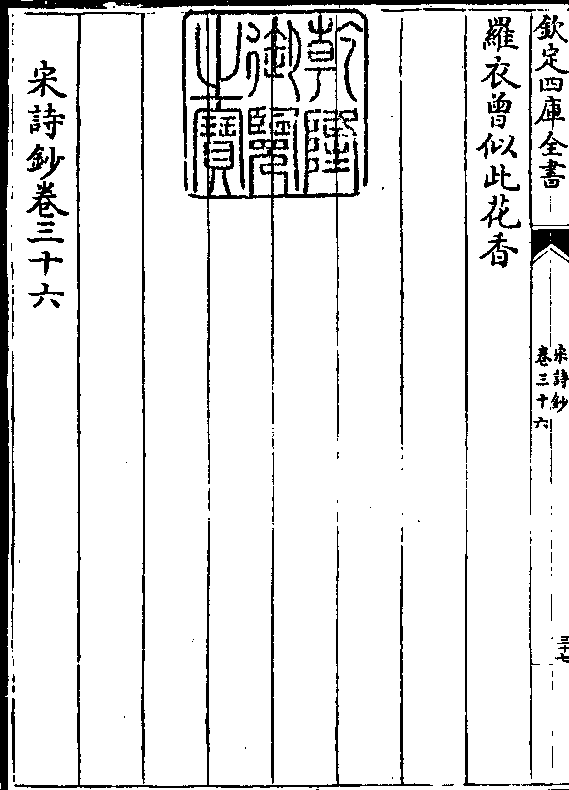 欽定四庫全書
宋詩鈔
卷三十六
三十七
羅衣曾似此花香
乾隆
御覽
之寶
宋詩鈔卷三十六